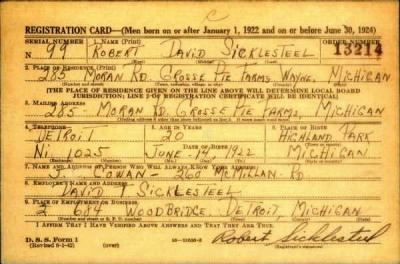 C
REGISTRATION CARD—(Men born on or after January 1, 1922 and on or before June 30, 1924)
SERIAL NUMBER 1. NAME (Print) ORDER NUMBER
N 99 ROBERT DAVID SICKLESTEEL 13214
2. PLACE OF RESIDENCE (Print)
285 MORAN RD. GROSSE PTE FARMS WAYNE, MICHIGAN
[THE PLACE OF RESIDENCE GIVEN ON THE LINE ABOVE WILL DETERMINE LOCAL BOARD
JURISDICTION; LINE 2 OF REGISTRATION CERTIFICATE WILL BE IDENTICAL]
3. MAILING ADDRESS
285 MORAN RD. GROSSE PTE FARMS, MICHIGAN
4. TELEPHONE 5. AGE IN YEARS 6. PLACE OF BIRTH
DETROIT 20 HIGHLAND PARK
DATE OF BIRTH
NI 1025 JUNE-14 1922 MICHIGAN
7. NAME AND ADDRESS OF PERSON WHO WILL ALWAYS KNOW YOUR ADDRESS
J. COWAN - 260 MCMILLAN RD
8. EMPLOYER'S NAME AND ADDRESS
DAVID T SICKLESTEEL
9. PLACE OF EMPLOYMENT OR BUSINESS
2 684 WOODBRIDGE, DETROIT, MICHIGAN
I AFFIRM THAT I HAVE VERIFIED ABOVE ANSWERS AND THAT THEY ARE TRUE.
D. S. S. Form 1
Robert Sicklesteel